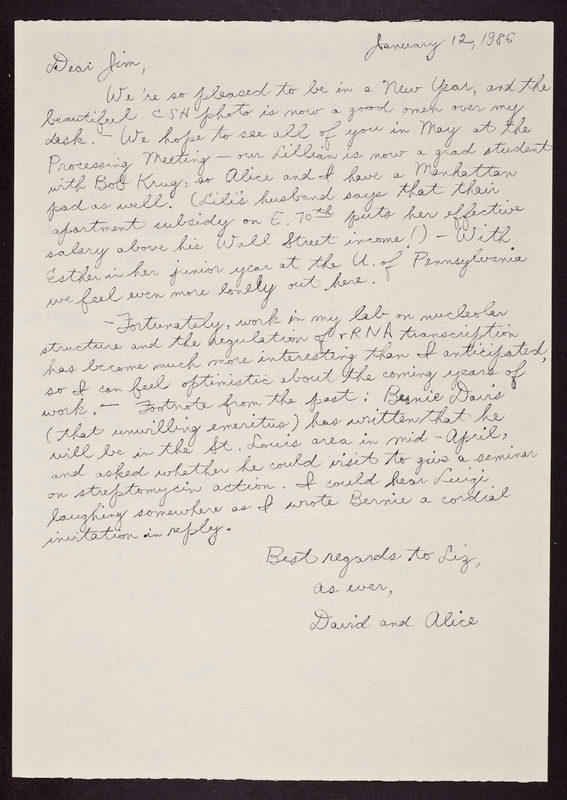 January 12, 1986
Dear Jim,
We're so pleased to be in a New Year, and the
beautiful CSH photo is now a good omen over my
desk. — We hope to see all of you in May at the
Processing Meeting — our Lillian is now a grad student
with Bob Krug, so Alice and I have a Manhattan
pad as well. (Lili's husband says that their
apartment subsidy on E. 70th puts her effective
salary above his Wall Street income!) — With
Esther in her junior year at the U. of Pennsylvania
we feel even more lonely out here.
— Fortunately, work in my lab on nucleolar
structure and the regulation of rRNA transcription
has become much more interesting than I anticipated,
so I can feel optimistic about the coming years of
work. — Footnote from the past: Bernie Davis
(that unwilling emeritus) has written that he
will be in the St. Louis area in mid-April,
and asked whether he could visit to give a seminar
on streptomycin action. I could hear Luigi
laughing somewhere as I wrote Bernie a cordial
invitation in reply.
Best regards to Liz,
as ever,
David and Alice